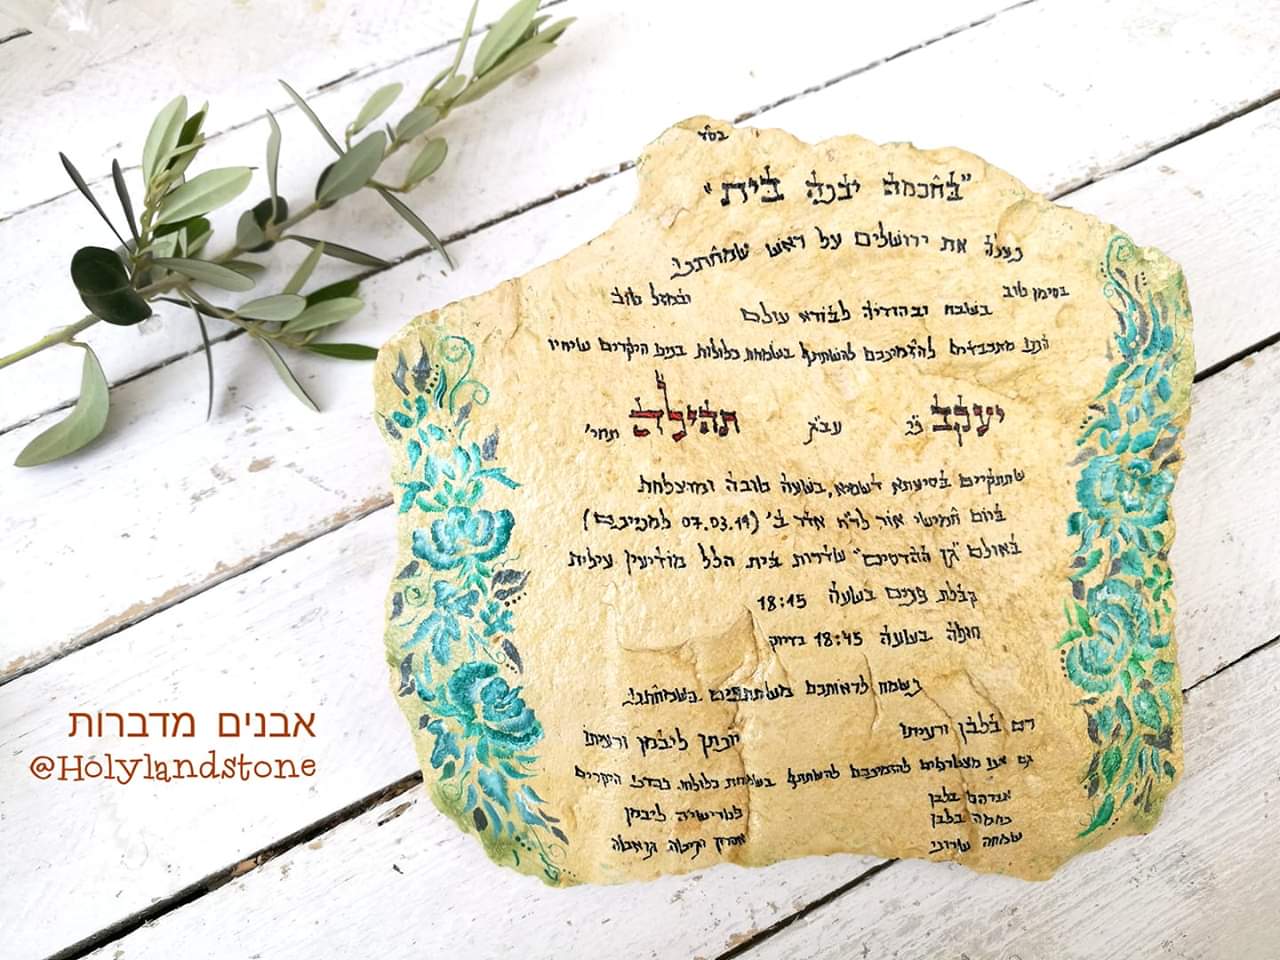 בס"ד
"בחכמה יבנה בית"
נעלה את ירושלים על ראש שמחתנו
בסימן טוב ובמזל טוב
בשבח ובהודיה לבורא עולם
הננו מתכבדים להזמינכם להשתתף בשמחת כלולות בנינו היקרים שיחיו
יעקב ני' עב"ג תהילה תחי'
שתתקיים בסיעתא דשמיא, בשעה טובה ומוצלחת
ביום חמישי אור לר"ח אדר ב' (07.03.19 למנינם)
באולם "גן ההדסים" שדרות בית הלל מודיעין עילית
קבלת פנים בשעה 18:15
חופה בשעה 18:45 בדיוק
נשמח לראותכם משתתפים בשמחתנו
רם בלבן ורעיתו
יונתן ליבמן ורעיתו
גם אנו מצטרפים להזמינכם להשתתף בשמחת כלולות נכדנו היקרים
אברהם בלבן
נחמה בלבן
שמחה שרוני
ליבמן
אבנים מדברות
@Holylandstone